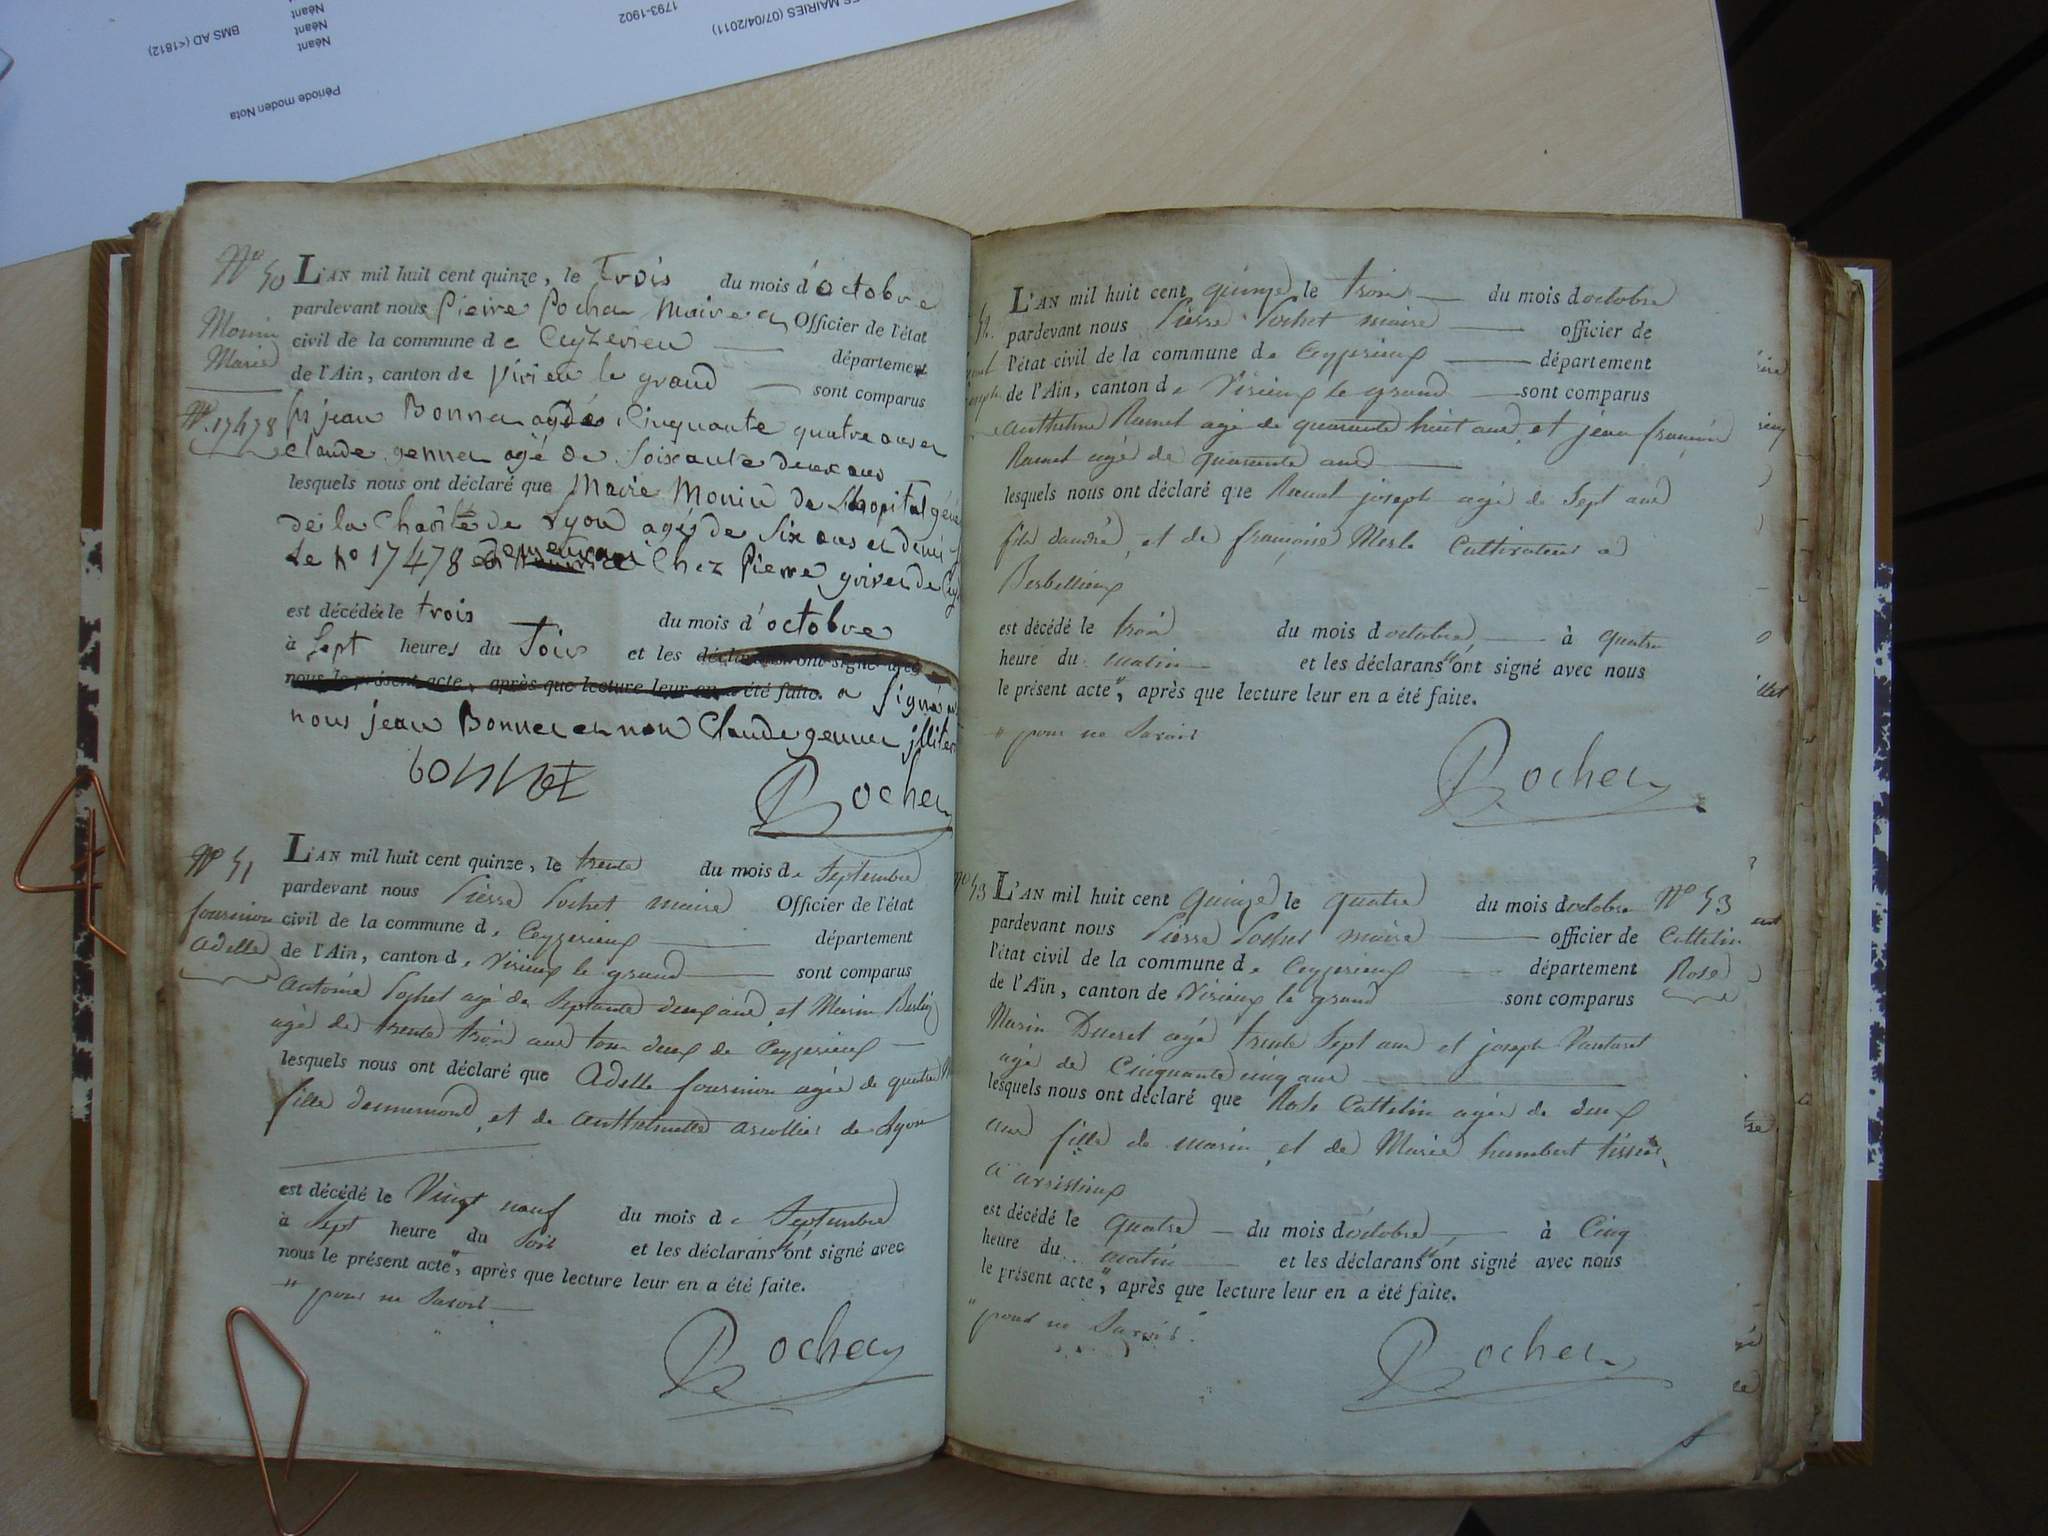 ES MAIRIES (07/04/2011)
1793-1902
BMS AD (<1812)
Néant
Néant
Néant
Période moden Nota
No 50
Monin
Marie
No. 17478
L'AN mil huit cent quinze, le trois du mois d'octobre
pardevant nous Pierre Pochet Maire et Officier de l'état
civil de la commune de Ceyzerieu département
de l'Ain, canton de Virieu le grand sont comparus
jean Bonnet agé de Cinquante quatre ans et
Claude gennet agé de Soixante deux ans
lesquels nous ont déclaré que Marie Monin de Lhopital
de la Charité de Lyon agée de Six ans et demi
Le no 17478 demeurant Chez Pierre grivet de
est décédée le trois du mois d'octobre
à Sept heures du Soir et les déclarans ont signé avec
nous le présent acte, après que lecture leur en a été faite. a Signé
nous jean Bonnet et non Claude gennet
bonnet Pochet
No 51
fournion
adelle
L'AN mil huit cent quinze, le trente du mois de Septembre
pardevant nous Pierre Pochet maire Officier de l'état
civil de la commune de Ceyzerieux département
de l'Ain, canton de Virieux le grand sont comparus
antoine Pochet agé de Septante deux ans, et Marin
agé de trente trois ans tous deux de Ceyzerieux
lesquels nous ont déclaré que Adelle fournion agée de quatre
fille et de de Lyon
est décédé le Vingt neuf du mois de Septembre
à Sept heure du Soir et les déclarans " ont signé avec
nous le présent acte ", après que lecture leur en a été faite.
" pour ne Savoir
Pochet
L'AN mil huit cent quinze le trois du mois d octobre
pardevant nous Pierre Pochet maire officier de
l'état civil de la commune de Ceyzerieux département
de l'Ain, canton de Virieux le grand sont comparus
anthelme Ramel agé de quarante huit ans, et jean françois
Ramel agé de quarante ans
lesquels nous ont déclaré que Ramel joseph agé de Sept ans
fils dandré, et de françoise Merle Cultivateur a
est décédé le trois du mois d octobre, à quatre
heure du matin et les déclarans " ont signé avec nous
le présent acte ", après que lecture leur en a été faite.
" pour ne Savoir
Pochet
no 53
L'AN mil huit cent quinze le quatre du mois d octobre No 53
pardevant nous Pierre Pochet maire officier de Cattelin
l'état civil de la commune de Ceyzerieux département Rose
de l'Ain, canton de Virieux le grand sont comparus
Marin Ducret agé trente Sept ans et joseph
agé de Cinquante cinq ans
lesquels nous ont déclaré que Rose Cattelin agée de deux
ans fille de marin, et de Marie humbert
est décédé le quatre du mois d octobre, à Cinq
heure du matin et les déclarans " ont signé avec nous
le présent acte ", après que lecture leur en a été faite.
" pour ne Savoir.
Pochet